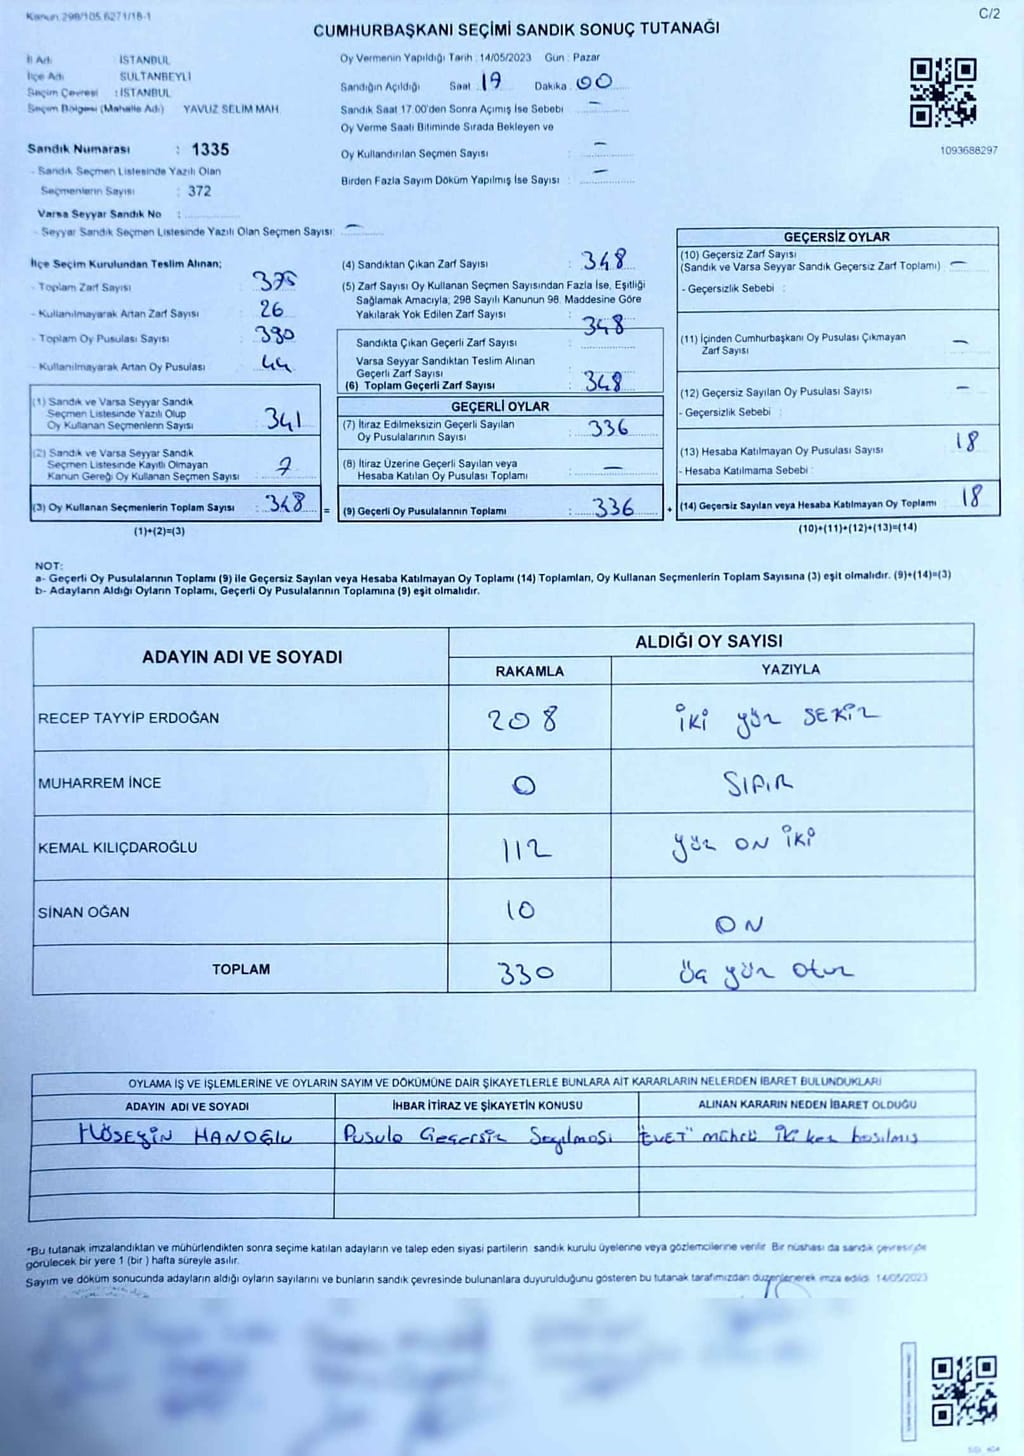 Kanun 298/105 6271/18-1
C/2
CUMHURBAŞKANI SEÇİMİ SANDIK SONUÇ TUTANAĞI
İl Adı İSTANBUL
İlçe Adı SULTANBEYLİ
Seçim Çevresi : İSTANBUL
Seçim Bölgesi (Mahalle Adı) YAVUZ SELİM MAH.
Oy Vermenin Yapıldığı Tarih : 14/05/2023 Gün : Pazar
Sandığın Açıldığı Saat 19 Dakika 00
Sandık Saat 17.00'den Sonra Açımış İse Sebebi –
Oy Verme Saati Bitiminde Sırada Bekleyen ve
Oy Kullandırılan Seçmen Sayısı : –
Birden Fazla Sayım Döküm Yapılmış İse Sayısı : –
1093688297
Sandık Numarası : 1335
- Sandık Seçmen Listesinde Yazılı Olan
Seçmenlerin Sayısı : 372
Varsa Seyyar Sandık No :
- Seyyar Sandık Seçmen Listesinde Yazılı Olan Seçmen Sayısı: –
İlçe Seçim Kurulundan Teslim Alınan;
- Toplam Zarf Sayısı : 375
- Kullanılmayarak Artan Zarf Sayısı : 26
- Toplam Oy Pusulası Sayısı : 390
- Kullanılmayarak Artan Oy Pusulası : 44
(1) Sandık ve Varsa Seyyar Sandık
Seçmen Listesinde Yazılı Olup
Oy Kullanan Seçmenlerin Sayısı : 341
(2) Sandık ve Varsa Seyyar Sandık
Seçmen Listesinde Kayıtlı Olmayan
Kanun Gereği Oy Kullanan Seçmen Sayısı : 7
(3) Oy Kullanan Seçmenlerin Toplam Sayısı : 348 =
(1)+(2)=(3)
(4) Sandıktan Çıkan Zarf Sayısı : 348
(5) Zarf Sayısı Oy Kullanan Seçmen Sayısından Fazla İse, Eşitliği
Sağlamak Amacıyla, 298 Sayılı Kanunun 98. Maddesine Göre
Yakılarak Yok Edilen Zarf Sayısı :
348
Sandıkta Çıkan Geçerli Zarf Sayısı :
Varsa Seyyar Sandıktan Teslim Alınan
Geçerli Zarf Sayısı :
(6) Toplam Geçerli Zarf Sayısı : 348
GEÇERLİ OYLAR
(7) İtiraz Edilmeksizin Geçerli Sayılan
Oy Pusulalarının Sayısı : 336
(8) İtiraz Üzerine Geçerli Sayılan veya
Hesaba Katılan Oy Pusulası Toplamı : –
(9) Geçerli Oy Pusulalarının Toplamı : 336 +
GEÇERSİZ OYLAR
(10) Geçersiz Zarf Sayısı
(Sandık ve Varsa Seyyar Sandık Geçersiz Zarf Toplamı) : –
- Geçersizlik Sebebi :
(11) İçinden Cumhurbaşkanı Oy Pusulası Çıkmayan
Zarf Sayısı : –
(12) Geçersiz Sayılan Oy Pusulası Sayısı : –
- Geçersizlik Sebebi :
(13) Hesaba Katılmayan Oy Pusulası Sayısı : 18
- Hesaba Katılmama Sebebi :
(14) Geçersiz Sayılan veya Hesaba Katılmayan Oy Toplamı : 18
(10)+(11)+(12)+(13)=(14)
NOT:
a- Geçerli Oy Pusulalarının Toplamı (9) ile Geçersiz Sayılan veya Hesaba Katılmayan Oy Toplamı (14) Toplamları, Oy Kullanan Seçmenlerin Toplam Sayısına (3) eşit olmalıdır. (9)+(14)=(3)
b- Adayların Aldığı Oyların Toplamı, Geçerli Oy Pusulalarının Toplamına (9) eşit olmalıdır.
ADAYIN ADI VE SOYADI ALDIĞI OY SAYISI
RAKAMLA YAZIYLA
RECEP TAYYİP ERDOĞAN 208 iki yüz SEKİZ
MUHARREM İNCE 0 SIFIR
KEMAL KILIÇDAROĞLU 112 yüz ON İKİ
SİNAN OĞAN 10 ON
TOPLAM 330 üç yüz otuz
OYLAMA İŞ VE İŞLEMLERİNE VE OYLARIN SAYIM VE DÖKÜMÜNE DAİR ŞİKAYETLERLE BUNLARA AİT KARARLARIN NELERDEN İBARET BULUNDUKLARI
ADAYIN ADI VE SOYADI İHBAR İTİRAZ VE ŞİKAYETİN KONUSU ALINAN KARARIN NEDEN İBARET OLDUĞU
HÜSEYİN HANOĞLU Pusula Geçersiz Sayılması "EVET" mührü iki kez basılmış
*Bu tutanak imzalandıktan ve mühürlendikten sonra seçime katılan adayların ve talep eden siyasi partilerin sandık kurulu üyelerine veya gözlemcilerine verilir. Bir nüshası da sandık çevresinde
görülecek bir yere 1 (bir ) hafta süreyle asılır.
Sayım ve döküm sonucunda adayların aldığı oyların sayılarını ve bunların sandık çevresinde bulunanlara duyurulduğunu gösteren bu tutanak tarafımızdan düzenlenerek imza edildi. 14/05/2023